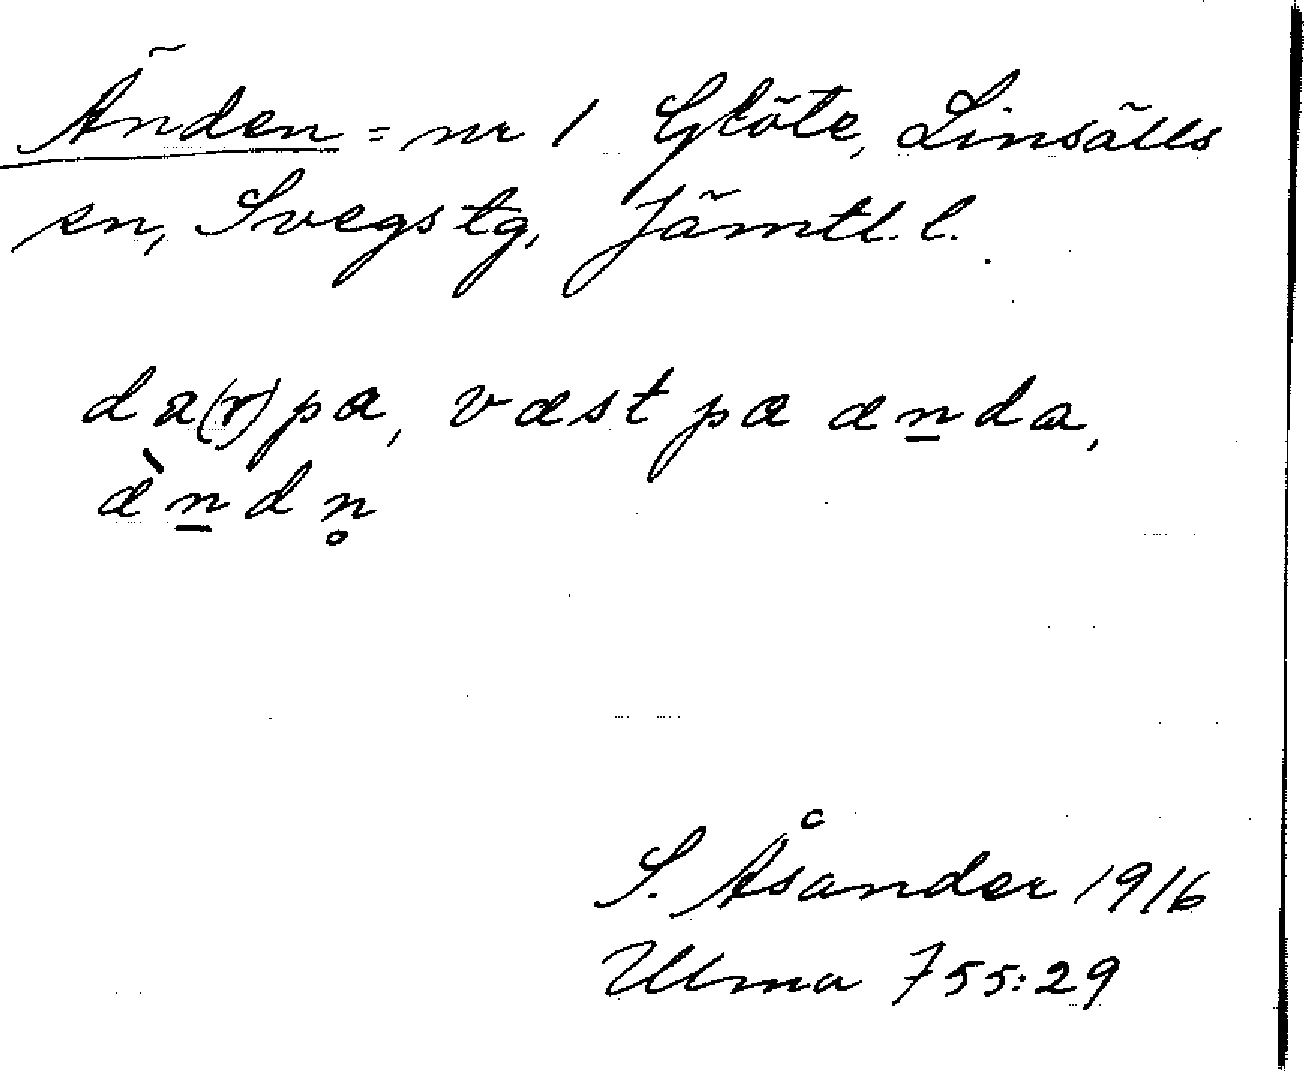 Änden = nr 1 Glöte, Linsälls
sn, Svegs tg, Jämtl. l.
da(r)pa, væst pa æn̲da,
æ̀n̲dn̥
S. Åsander 1916
Ulma 755:29